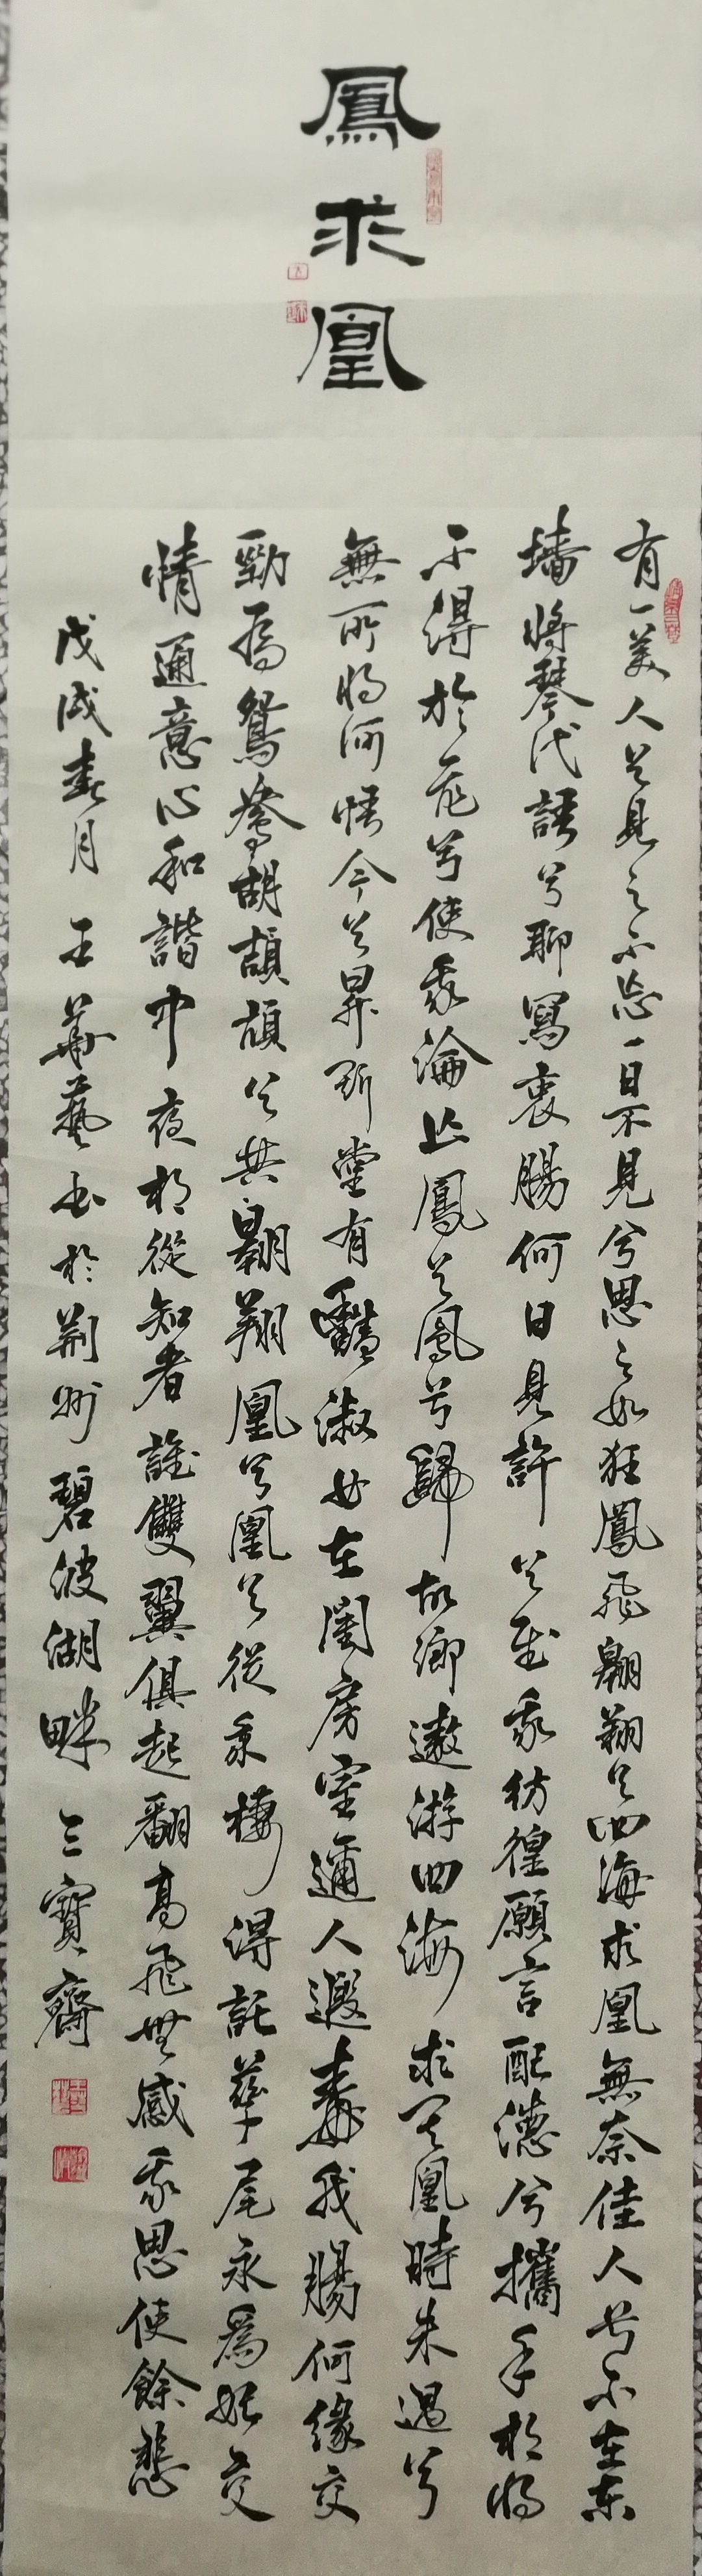 鳳求凰
有一美人兮見之不忘一日不見兮思之如狂鳳飛翱翔兮四海求凰無奈佳人兮不在東
墻將琴代語兮聊寫衷腸何日見許兮慰我彷徨願言配德兮攜手相將
不得於飛兮使我淪亡鳳兮鳳兮歸故鄉遨游四海求其凰時未遇兮
無所將何悟今兮昇斯堂有豔淑女在閨房室邇人遐毒我腸何緣交
頸為鴛鴦胡頡頏兮共翱翔凰兮凰兮從我棲得託孳尾永為妃交
情通意心和諧中夜相從知者誰雙翼俱起翻高飛無感我思使餘悲
戊戌春月 王華藝书於荆州碧波湖畔 三寶齋